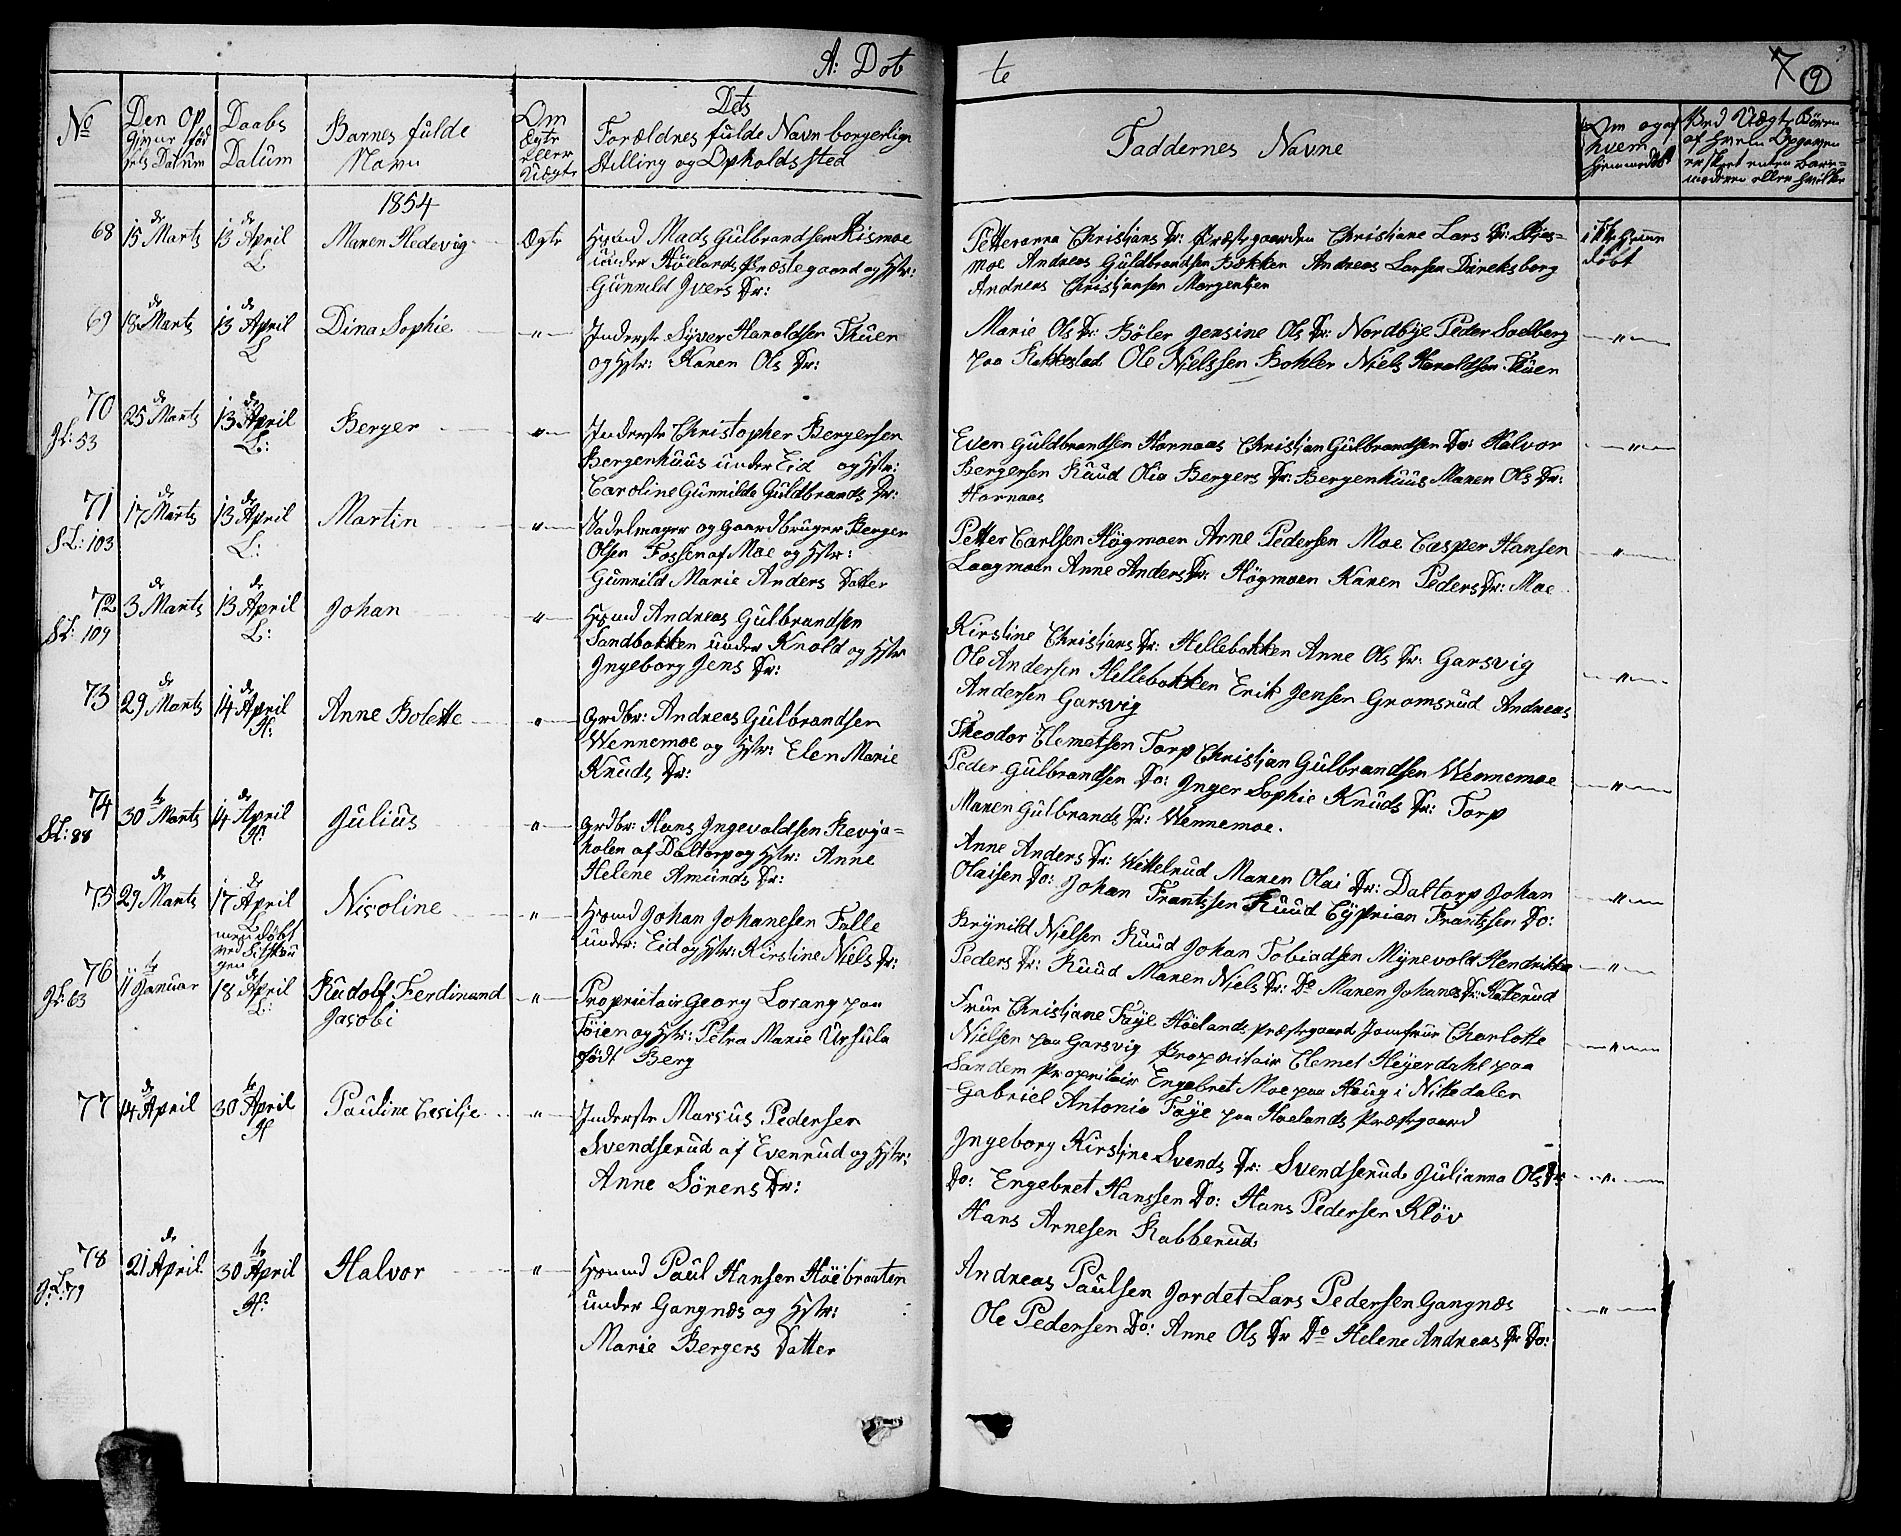 A: Døb
te
7 (9)
No
Den Op
givne fød
sels Datum
Daabs
Datum
Barnes fulde
Navn
Om
Ægte
eller
Uægte
Dets
Forældres fulde Navn borgerlige
Stilling og Opholdssted
Faddernes Navne
Om og af
hvem
hjemmedøbt
Ved Uægte Børn
af hvem Opgaven
er skeet enten Barne=
moderen eller hvilke
1854
68
15 de Marts
13 de April
L
Maren Hedevig
Ægte
Huusmd Mads Gulbrandsen Rismoe
under Høelands Præstegaard og Hstr:
Gunnild Ivers Dr:
Petteranna Christians Dr: Præstegaarden Christiane Lars Dr:
moe Andreas Guldbrandsen Bækken Andreas Larsen Dæneksborg
Andreas Christiansen Morgentien
ikke hjemme
døbt
69
18 de Marts
13 de April
L
Dina Sophie
"
Inderste Syver Haroldsen Thuen
og Hstr: Karen Ols Dr:
Marie Ols Dr: Bøler Jensine Ols Dr: Nordbye Peder Soelberg
paa Rakkestad Ole Nielssen Bohler Niels Haroldsen Thuen
"
70
JL: 53
25 de Marts
13 de April
L:
Berger
"
Inderste Christopher Bergersen
Bergenhuus under Eid og Hstr:
Caroline Gunnilde Guldbrands Dr:
Even Guldbrandsen Hornaas Christian Gulbrandsen Do: Halvor
Bergersen Ruud Olia Bergers Dr: Bergenhuus Maren Ols Dr:
Hornaas
"
71
SL: 103
17 de Marts
13 de April
L:
Martin
"
Sadelmager og Gaardbruger Berger
Olsen Fossen af Moe og Hstr:
Gunnild Marie Anders Datter
Petter Carlsen Høgmoen Arne Pedersen Moe Casper Hansen
Laagmoen Anne Anders Dr: Høgmoen Karen Peders Dr: Moe
"
72
SL: 109
3 de Marts
13 de April
L:
Johan
"
Husmd Andreas Gulbrandsen
Sandbakken under Knold og Hstr
Ingeborg Jens Dr:
Kirstine Christians Dr: Hellebakken Anne Ols Dr: Garsvig
Ole Andersen Hellebakken Erik Jensen Gromsrud Andreas
Andersen Garsvig
"
73
29 de Marts
14 de April
H:
Anne Bolette
"
Grdbr: Andreas Gulbrandsen
Wennemoe og Hstr: Elen Marie
Knuds Dr:
Theodor Clemetsen Torp Christian Gulbrandsen Wennemoe
Peder Gulbrandsen Do: Inger Sophie Knuds Dr: Torp
Maren Gulbrands Dr: Wennemoe.
"
74
SL: 88
30 te Marts
14 de April
H:
Julius
"
Grdbr: Hans Ingevaldsen Revja=
holen af Daltorp og Hstr: Anne
Helene Amunds Dr:
Anne Anders Dr: Wittelrud Maren Olai Dr: Daltorp Johan
Olaisen Do: Johan Frantssen Ruud Cyprian Frantssen Do:
"
75
29 de Marts
17 de April
L
men døbt
ved Sitskou
gen
Nicoline
"
Huusmd Johan Johanesen Falle
under: Eid og Hstr: Kirstine Niels Dr:
Brynild Nielsen Ruud Johan Tobiadsen Mynevold Hendrikka
Peders Dr: Ruud Maren Niels Dr: Do Maren Johanes Dr: Katerud
"
76
JL: 63
11 te Januar
18 de April
L:
Rudolf Ferdinand
Jacobi
"
Proprietair Georg Lorang paa
Töien og Hstr: Petra Marie Ursula
født Berg
Frue Christiane Faye Höelands præstegaard Jomfrue Charlotte
Nielsen paa Garsvig Propritair Clemet Heyerdahl paa
Sandem Propritair Engebret Moe paa Haug i Nitedalen
Gabriel Antonio Faye paa Høelands Præstegaard
"
77
14 de April
30 te April
H
Pauline Cesilje
"
Inderste Marcus Pedersen
Svendserud af Evenrud og Hstr:
Anne Sörens Dr:
Ingeborg Kirstine Svends Dr: Svendserud Julianna Ols Dr
Do: Engebret Hanssen Do: Hans Pedersen Kløv
Hans Arnesen Rabberud
"
78
JL: 79
21 de April
30 te April
H:
Halvor
"
Huusmd Paul Hansen Høebraaten
under Gangnæs og Hstr:
Marie Bergers Datter
Andreas Paulsen Jordet Lars Pedersen Gangnæs
Ole Pedersen Do: Anne Ols Dr Do Helene Andreas Dr Do:
"